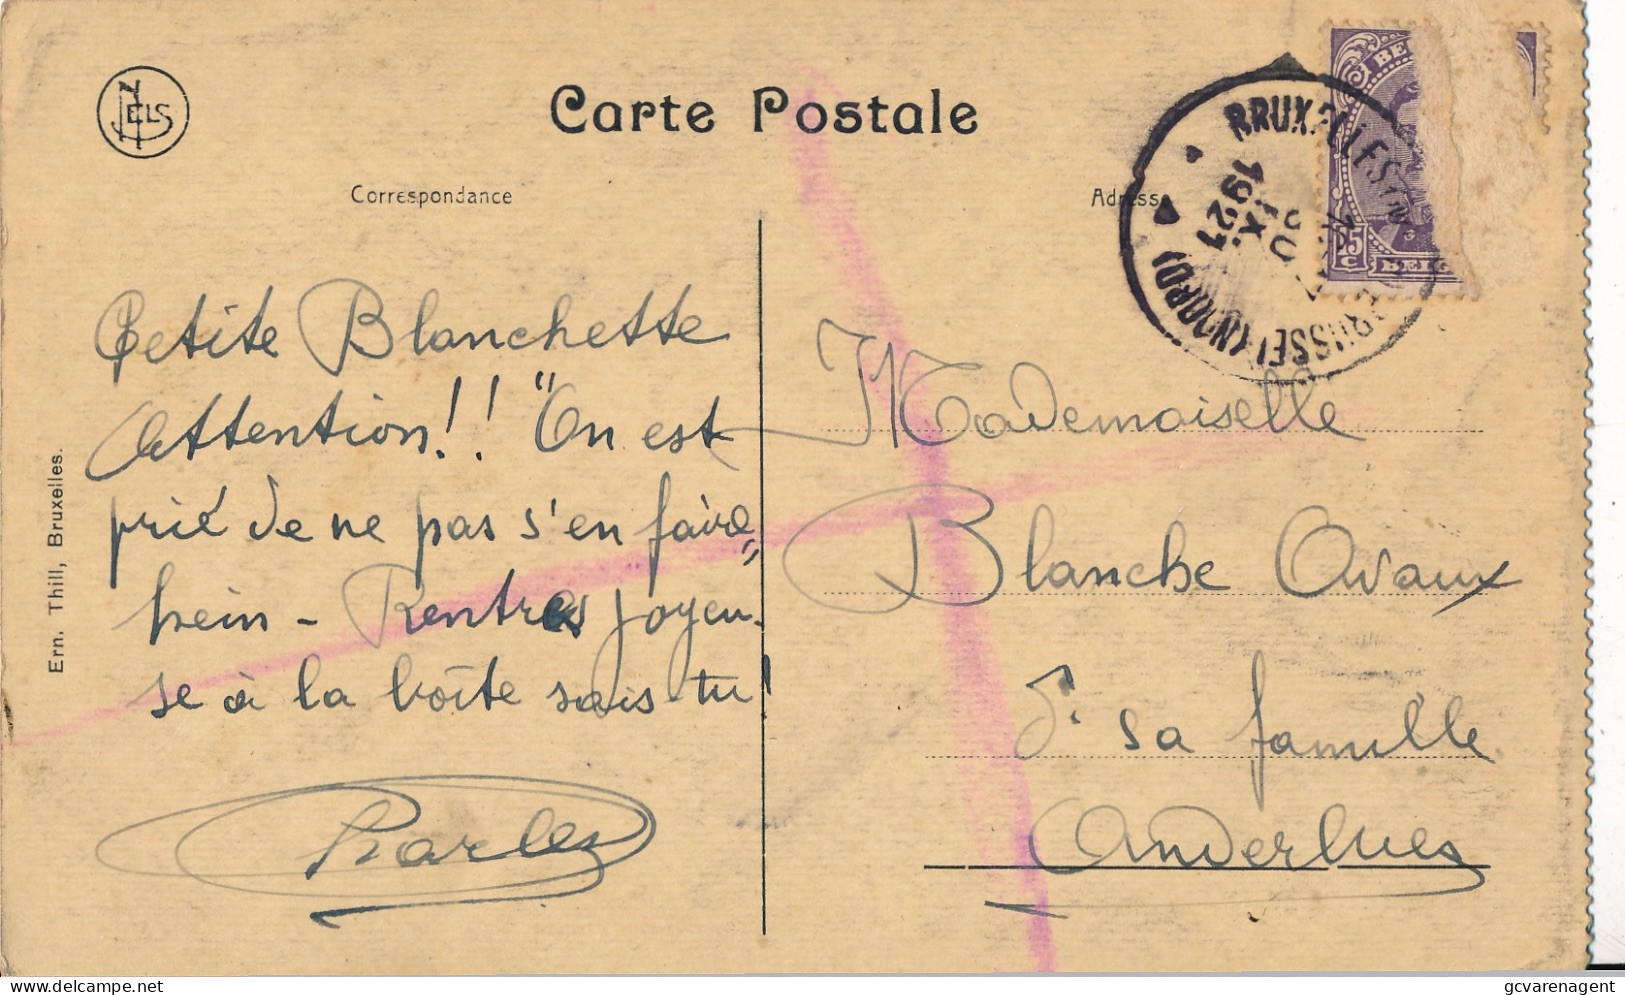 NELS
Carte Postale
Correspondance
Adresse
BRUXELLES (NORD)
1921
IX
BRUSSEL (NOORD)
BELG
15
C
BELG
Petite Blanchette
Attention!! "On est
prié de ne pas s'en faire"
hein - Rentres joyeu-
se à la boîte sais-tu!
Charles
Mademoiselle
Blanche Ovaux
&. sa famille
Anderlues
Ern. Thill, Bruxelles.
gcvarenagent